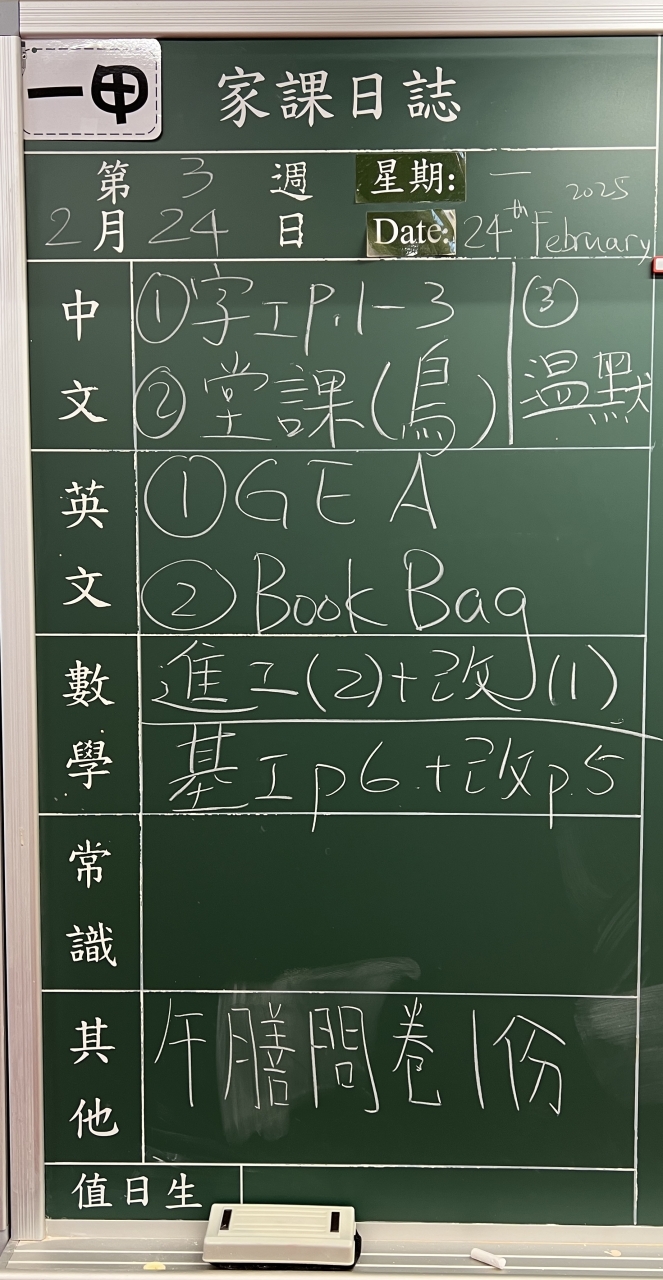 一甲
家課日誌
第 3 週 星期: 一 2025
2月24日 Date: 24th February
中文
①字工P.1-3
②堂課(鳥)
③
温默
英文
①GEA
②Book Bag
數學
進工(2)+改(1)
基工p6+改p.5
常識
其他
午膳問卷1份
值日生